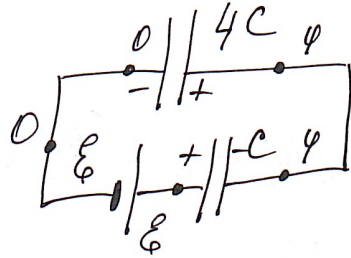 0 4C φ
- +
0
ℰ + -C φ
ℰ